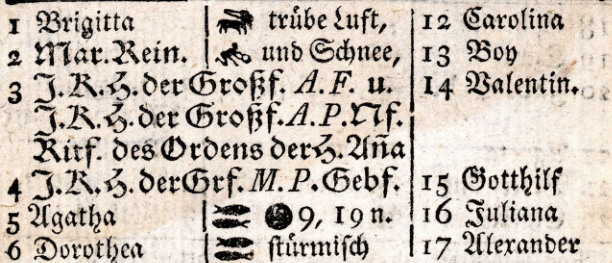 1 Brigitta trübe Luft, 12 Carolina
2 Mar. Rein. und Schnee, 13 Boy
3 J. K. H. der Großf. A. F. u. 14 Valentin.
J. K. H. der Großf. A. P. Nf.
Ritf. des Ordens der H. Aña
4 J. K. H. der Grf. M. P. Gebf. 15 Gotthilf
5 Agatha 9, 19 n. 16 Juliana
6 Dorothea stürmisch 17 Alexander